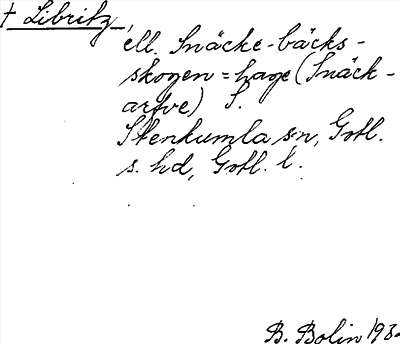 † Libritz,
ell. Snäcke-bäcks-
skogen = hage (Snäck-
artve) S.
Stenkumla sn, Gotl.
s. hd, Gotl. l.
B. Bolin 193